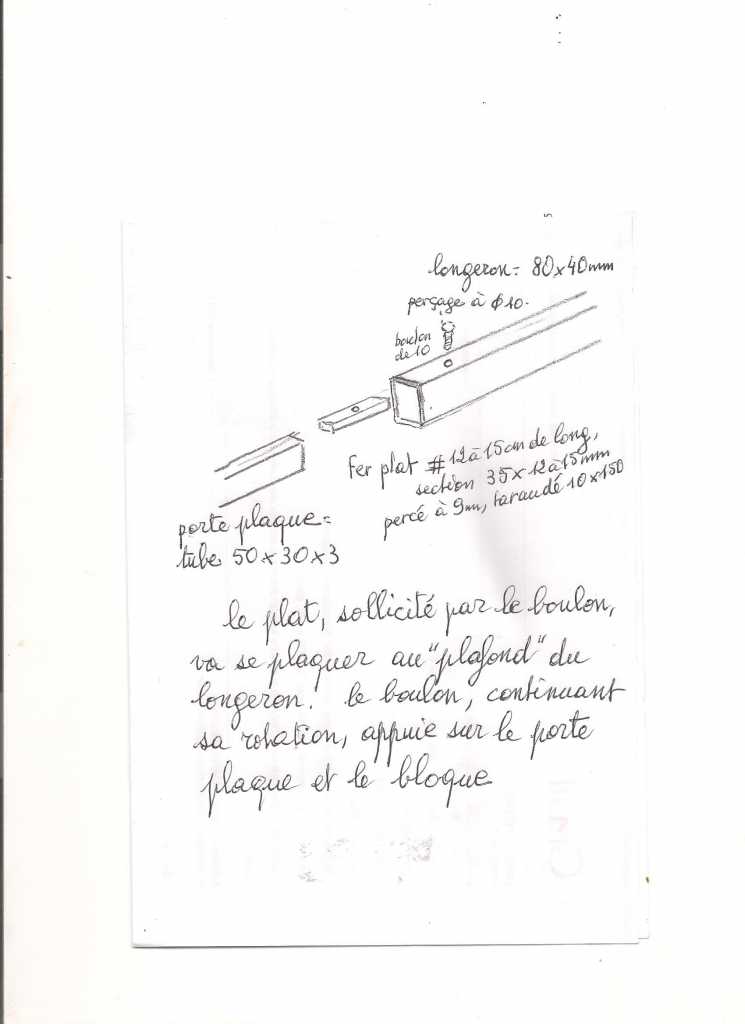 longeron = 80x40mm
perçage à ϕ10.
boulon
de 10
Fer plat # 12 à 15cm de long,
section 35x12 à 15mm
percé à 9mm, taraudé 10x150
porte plaque =
tube 50x30x3
le plat, sollicité par le boulon,
va se plaquer au "plafond" du
longeron. le boulon, continuant
sa rotation, appuie sur le porte
plaque et le bloque